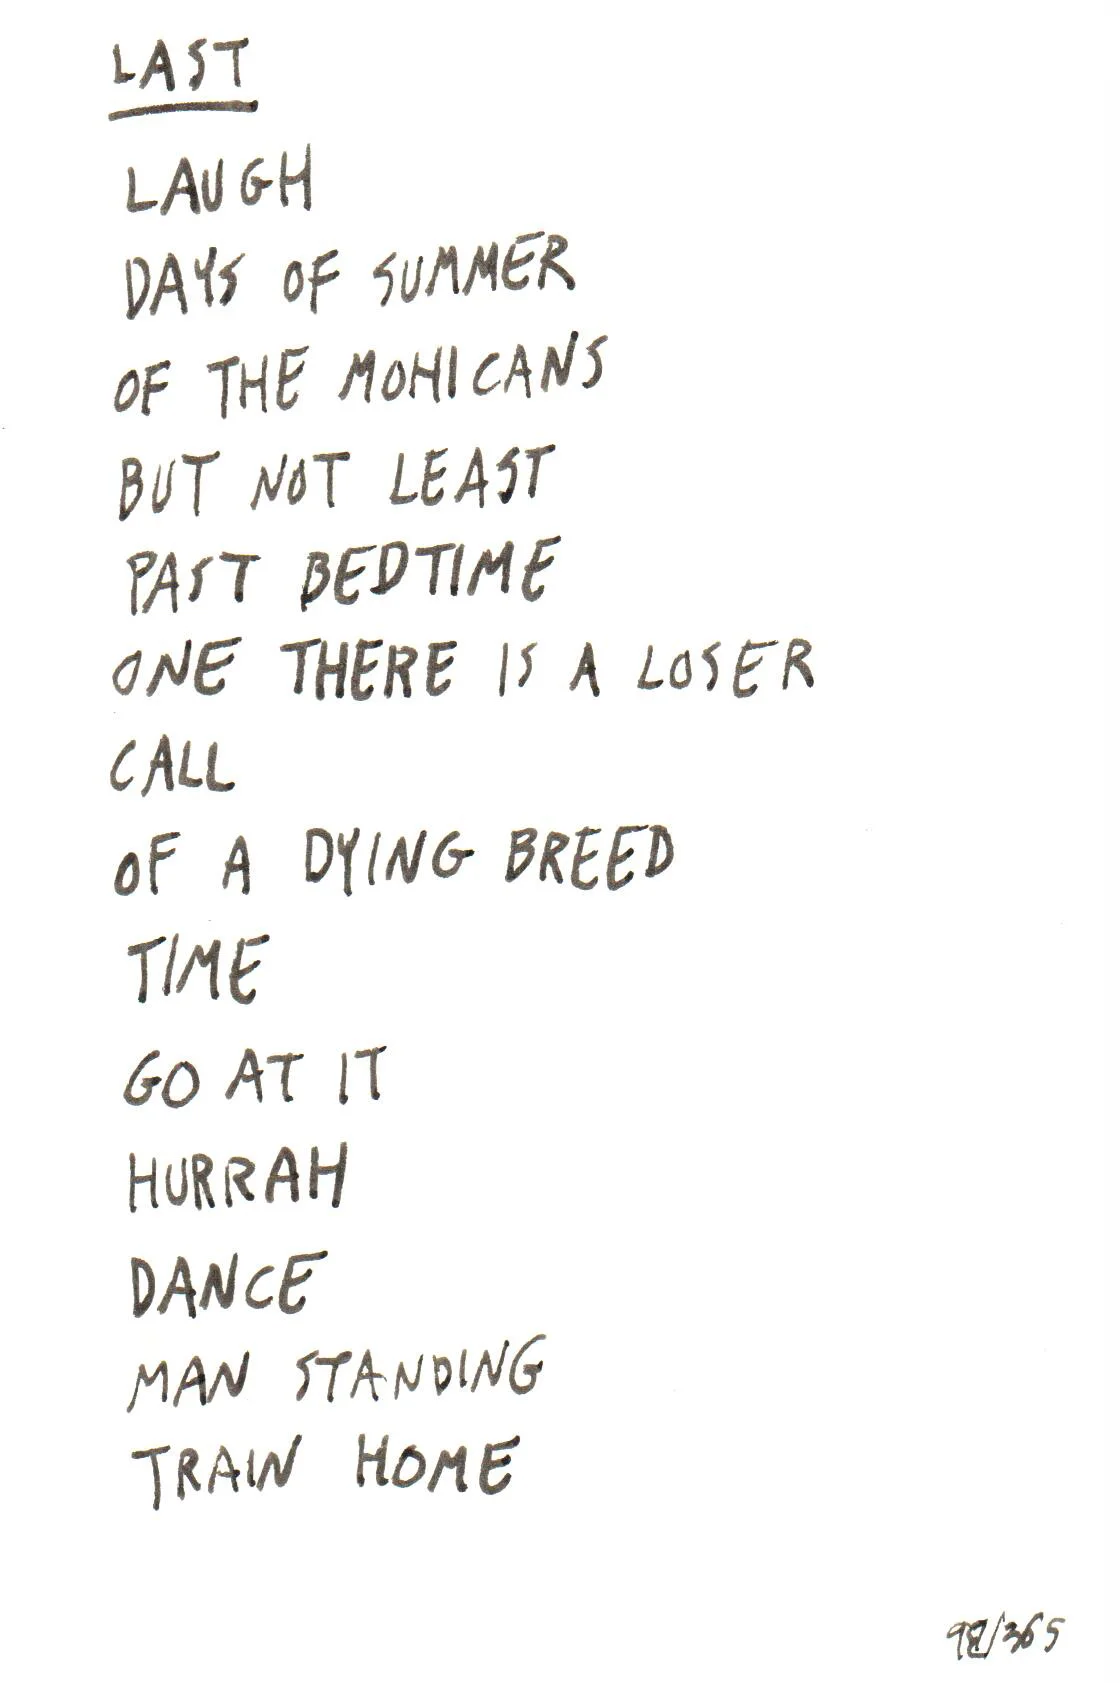 LAST
LAUGH
DAYS OF SUMMER
OF THE MOHICANS
BUT NOT LEAST
PAST BEDTIME
ONE THERE IS A LOSER
CALL
OF A DYING BREED
TIME
GO AT IT
HURRAH
DANCE
MAN STANDING
TRAIN HOME
98/365